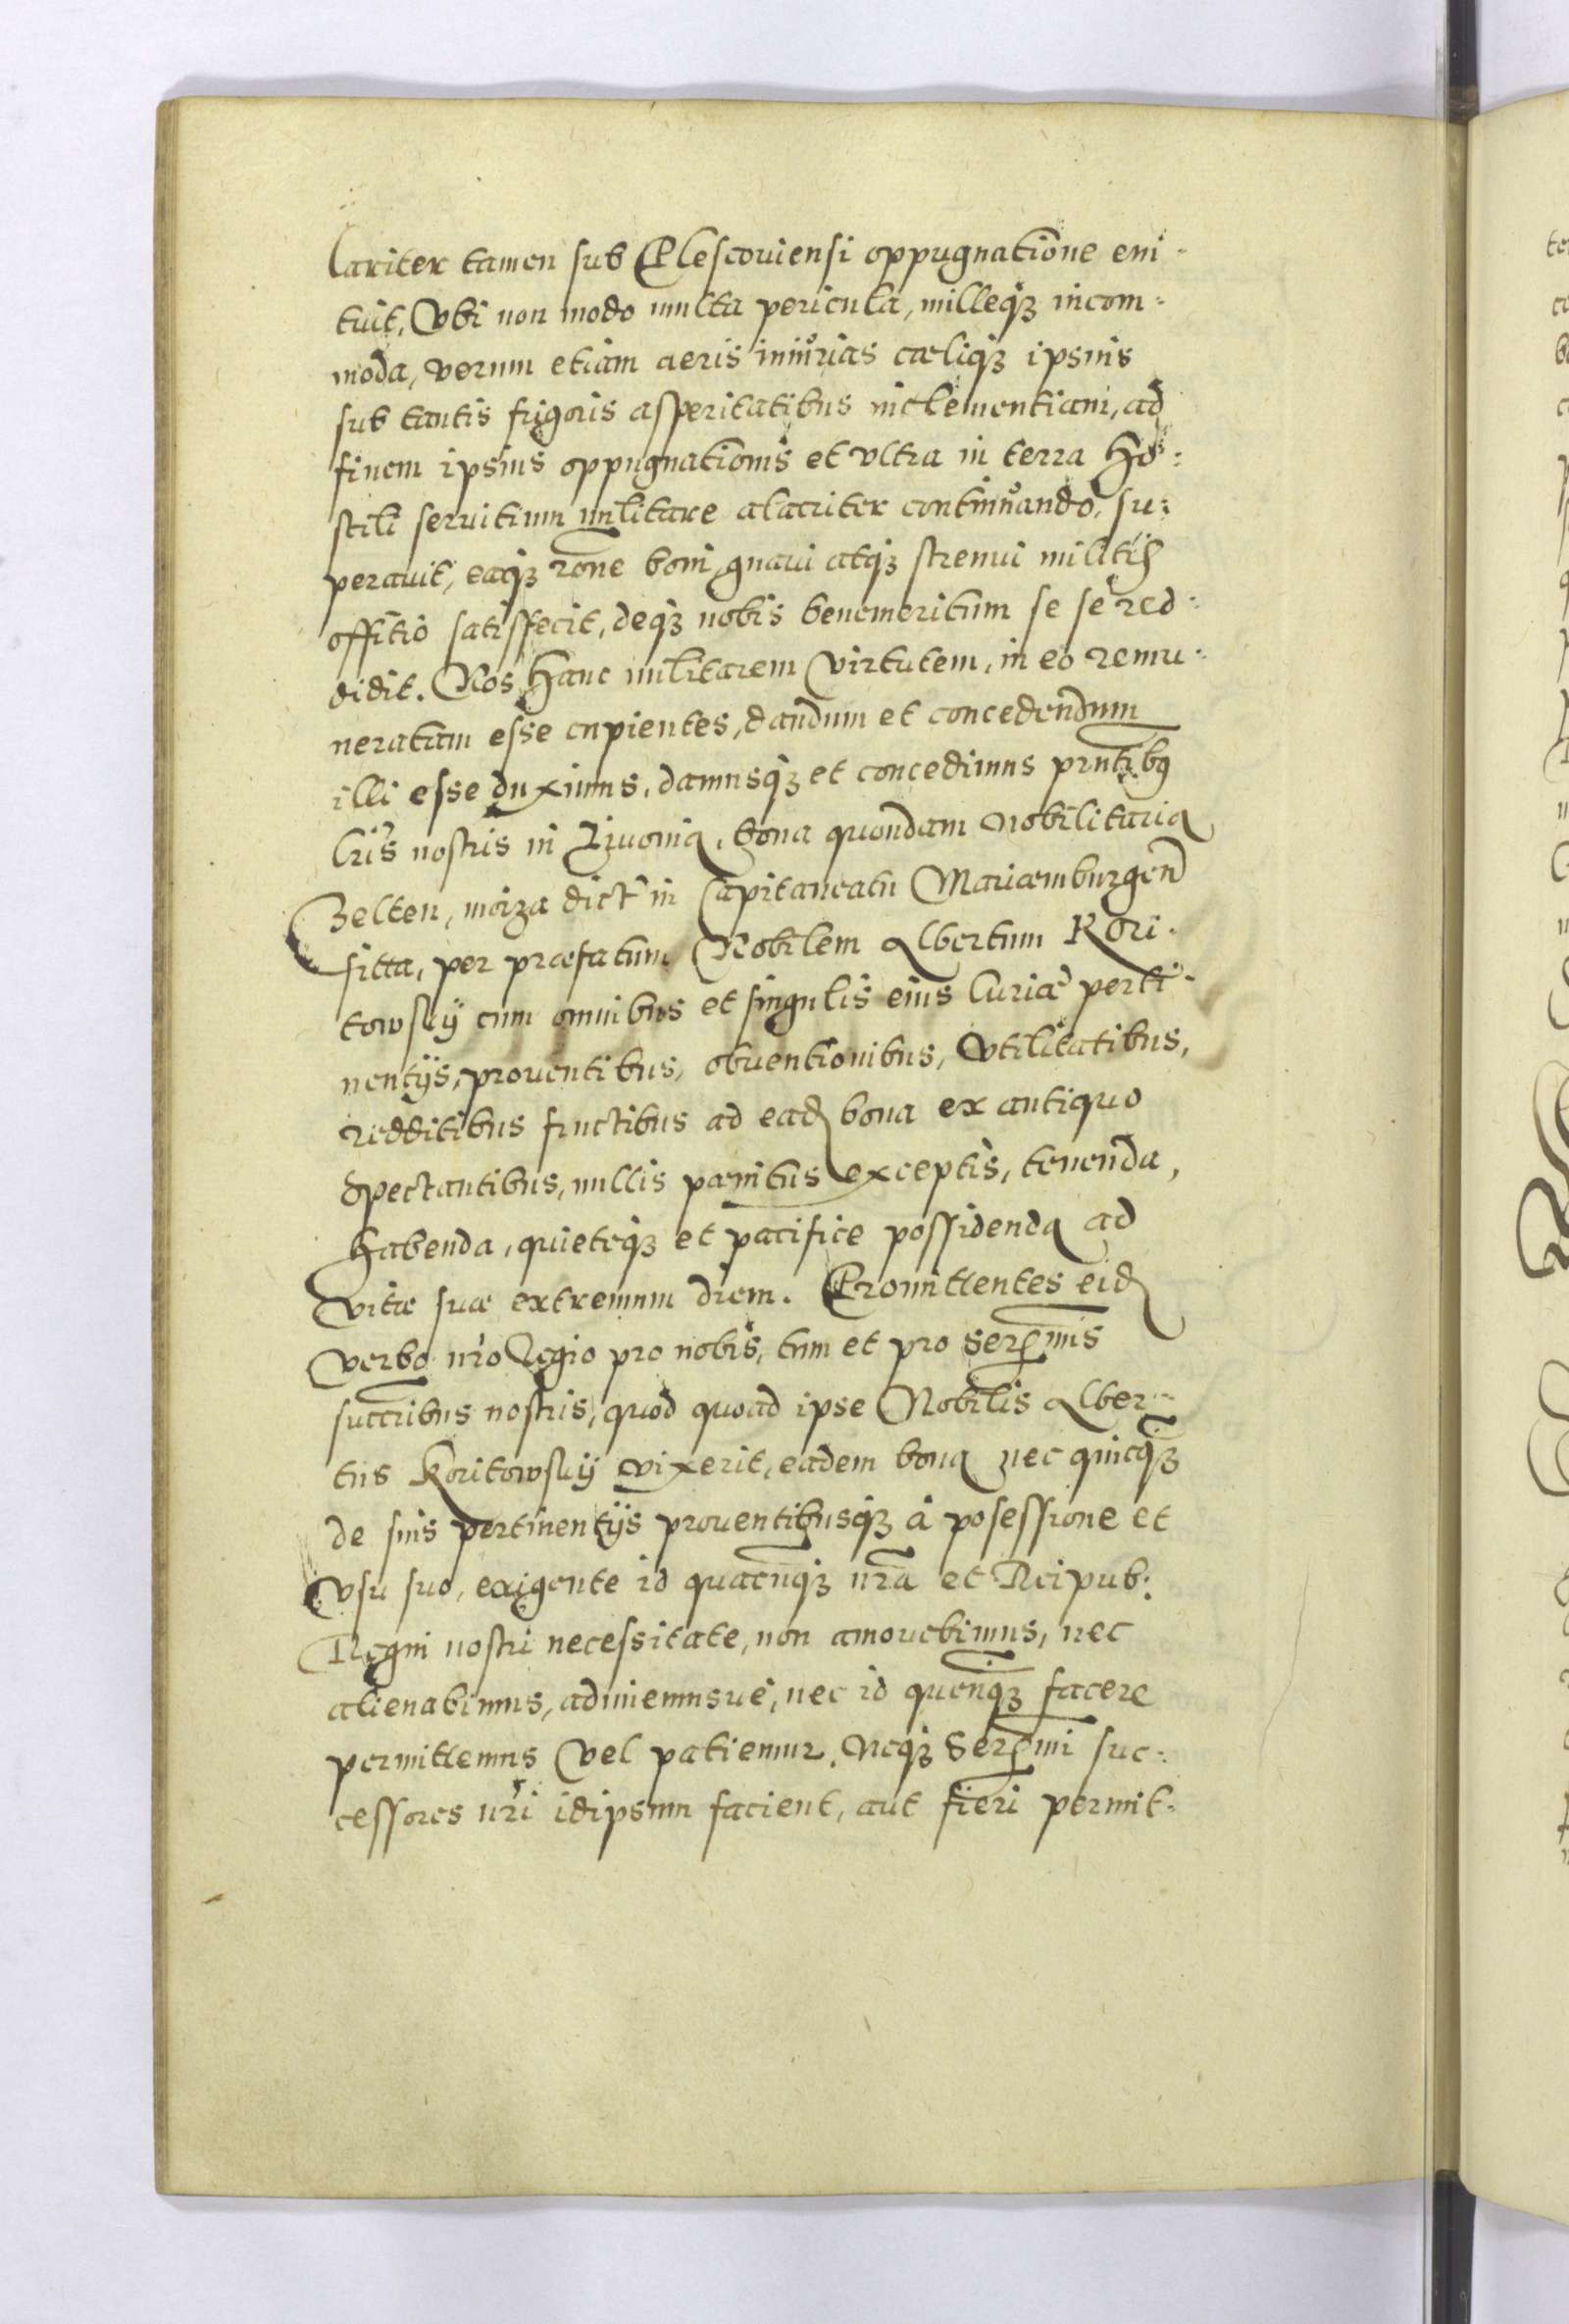 lariter tamen sub Plescoviensi oppugnatione eni-
tuit, Vbi non modo multa pericula, milleq₃ incom:
moda, verum etiam aeris iniurias cæliq₃ ipsius
sub tantis frigoris asperitatibus inclementiam, ad
finem ipsius oppugnationis et vltra in terra Ho:
stili servitium militare alacriter continuando, su:
peravit, eaq₃ rōne boni, gnavi atq₃ strenui militis
offitio satisfecit, deq₃ nobis benemeritum se se red:
didit. Nos Hanc militarem Virtutem, in eo remu:
neratam esse cupientes, dandum et concedendum
illi esse duximus, damusq₃ et concedimus prntibus
lris nostris in Livonia, bona quondam Nobilitaria
Zelten, moiza dict in Capitaneatu Mariæmburgen
sitta, per præfatum Nobilem Albertum Kori-
towsky cum omnibus et singulis eius Curiæ perti-
nentijs, proventibus, obventionibus, Vtilitatibus,
redditibus fructibus ad ead bona ex antiquo
spectantibus, nullis pænitus exceptis, tenenda,
Habenda, quieteq₃ et pacifice possidenda ad
vitæ suæ extremum diem. Promittentes eid
verbo nro Regio pro nobis, tum et pro Sermis
succribus nostris, quod quoad ipse Nobilis Alber-
tus Koritowsky vixerit, eadem bona nec quicq₃
de suis pertinentijs proventibusq₃ à posessione et
Vsu suo, exigente id quacunq₃ nra et Reipub:
Regni nostri necessitate, non amovebimus, nec
alienabimus, adimemusve, nec id quenq₃ facere
permittemus Vel patiemur. Neq₃ Sermi suc:
cessores nri idipsum facient, aut fieri permit-